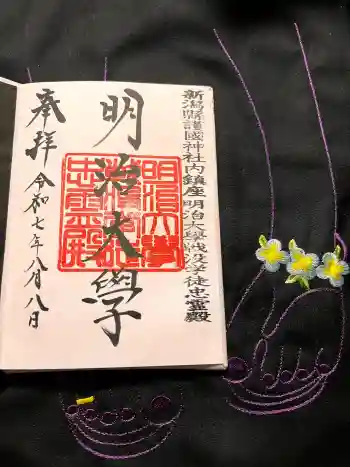 新潟縣護國神社内鎮座明治大學戦没学徒忠霊殿
明治大學
奉拝
令和七年八月八日